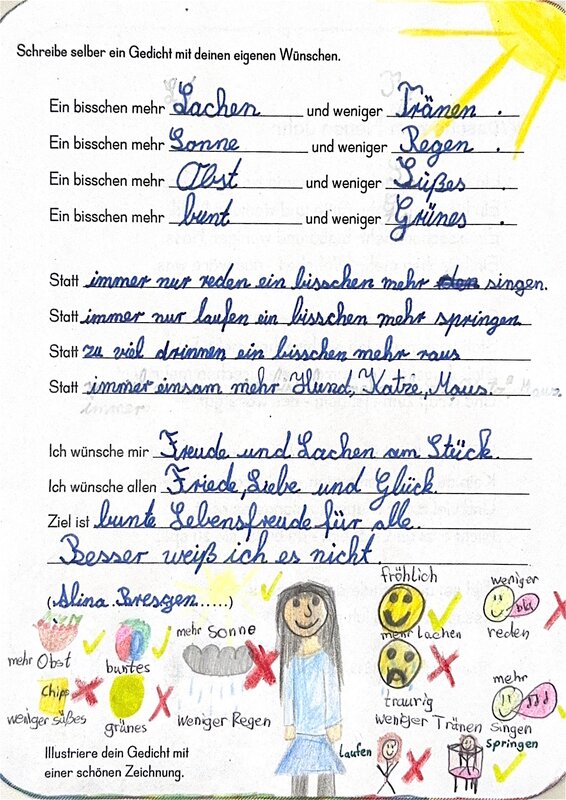 Schreibe selber ein Gedicht mit deinen eigenen Wünschen.
Ein bisschen mehr Lachen und weniger Tränen.
Ein bisschen mehr Sonne und weniger Regen.
Ein bisschen mehr Obst und weniger Süßes.
Ein bisschen mehr bunt und weniger Grünes.
Statt immer nur reden ein bisschen mehr singen.
Statt immer nur laufen ein bisschen mehr springen
Statt zu viel drinnen ein bisschen mehr raus
Statt immer einsam mehr Hund, Katze, Maus.
Ich wünsche mir Freude und Lachen am Stück.
Ich wünsche allen Friede, Liebe und Glück.
Ziel ist bunte Lebensfreude für alle.
Besser weiß ich es nicht.
(Alina Bresgen.....)
mehr Obst
buntes
mehr Sonne
Chips
weniger süßes
grünes
weniger Regen
fröhlich
mehr Lachen
weniger
bla
reden
traurig
weniger Tränen
mehr
singen
laufen
springen
Illustriere dein Gedicht mit
einer schönen Zeichnung.